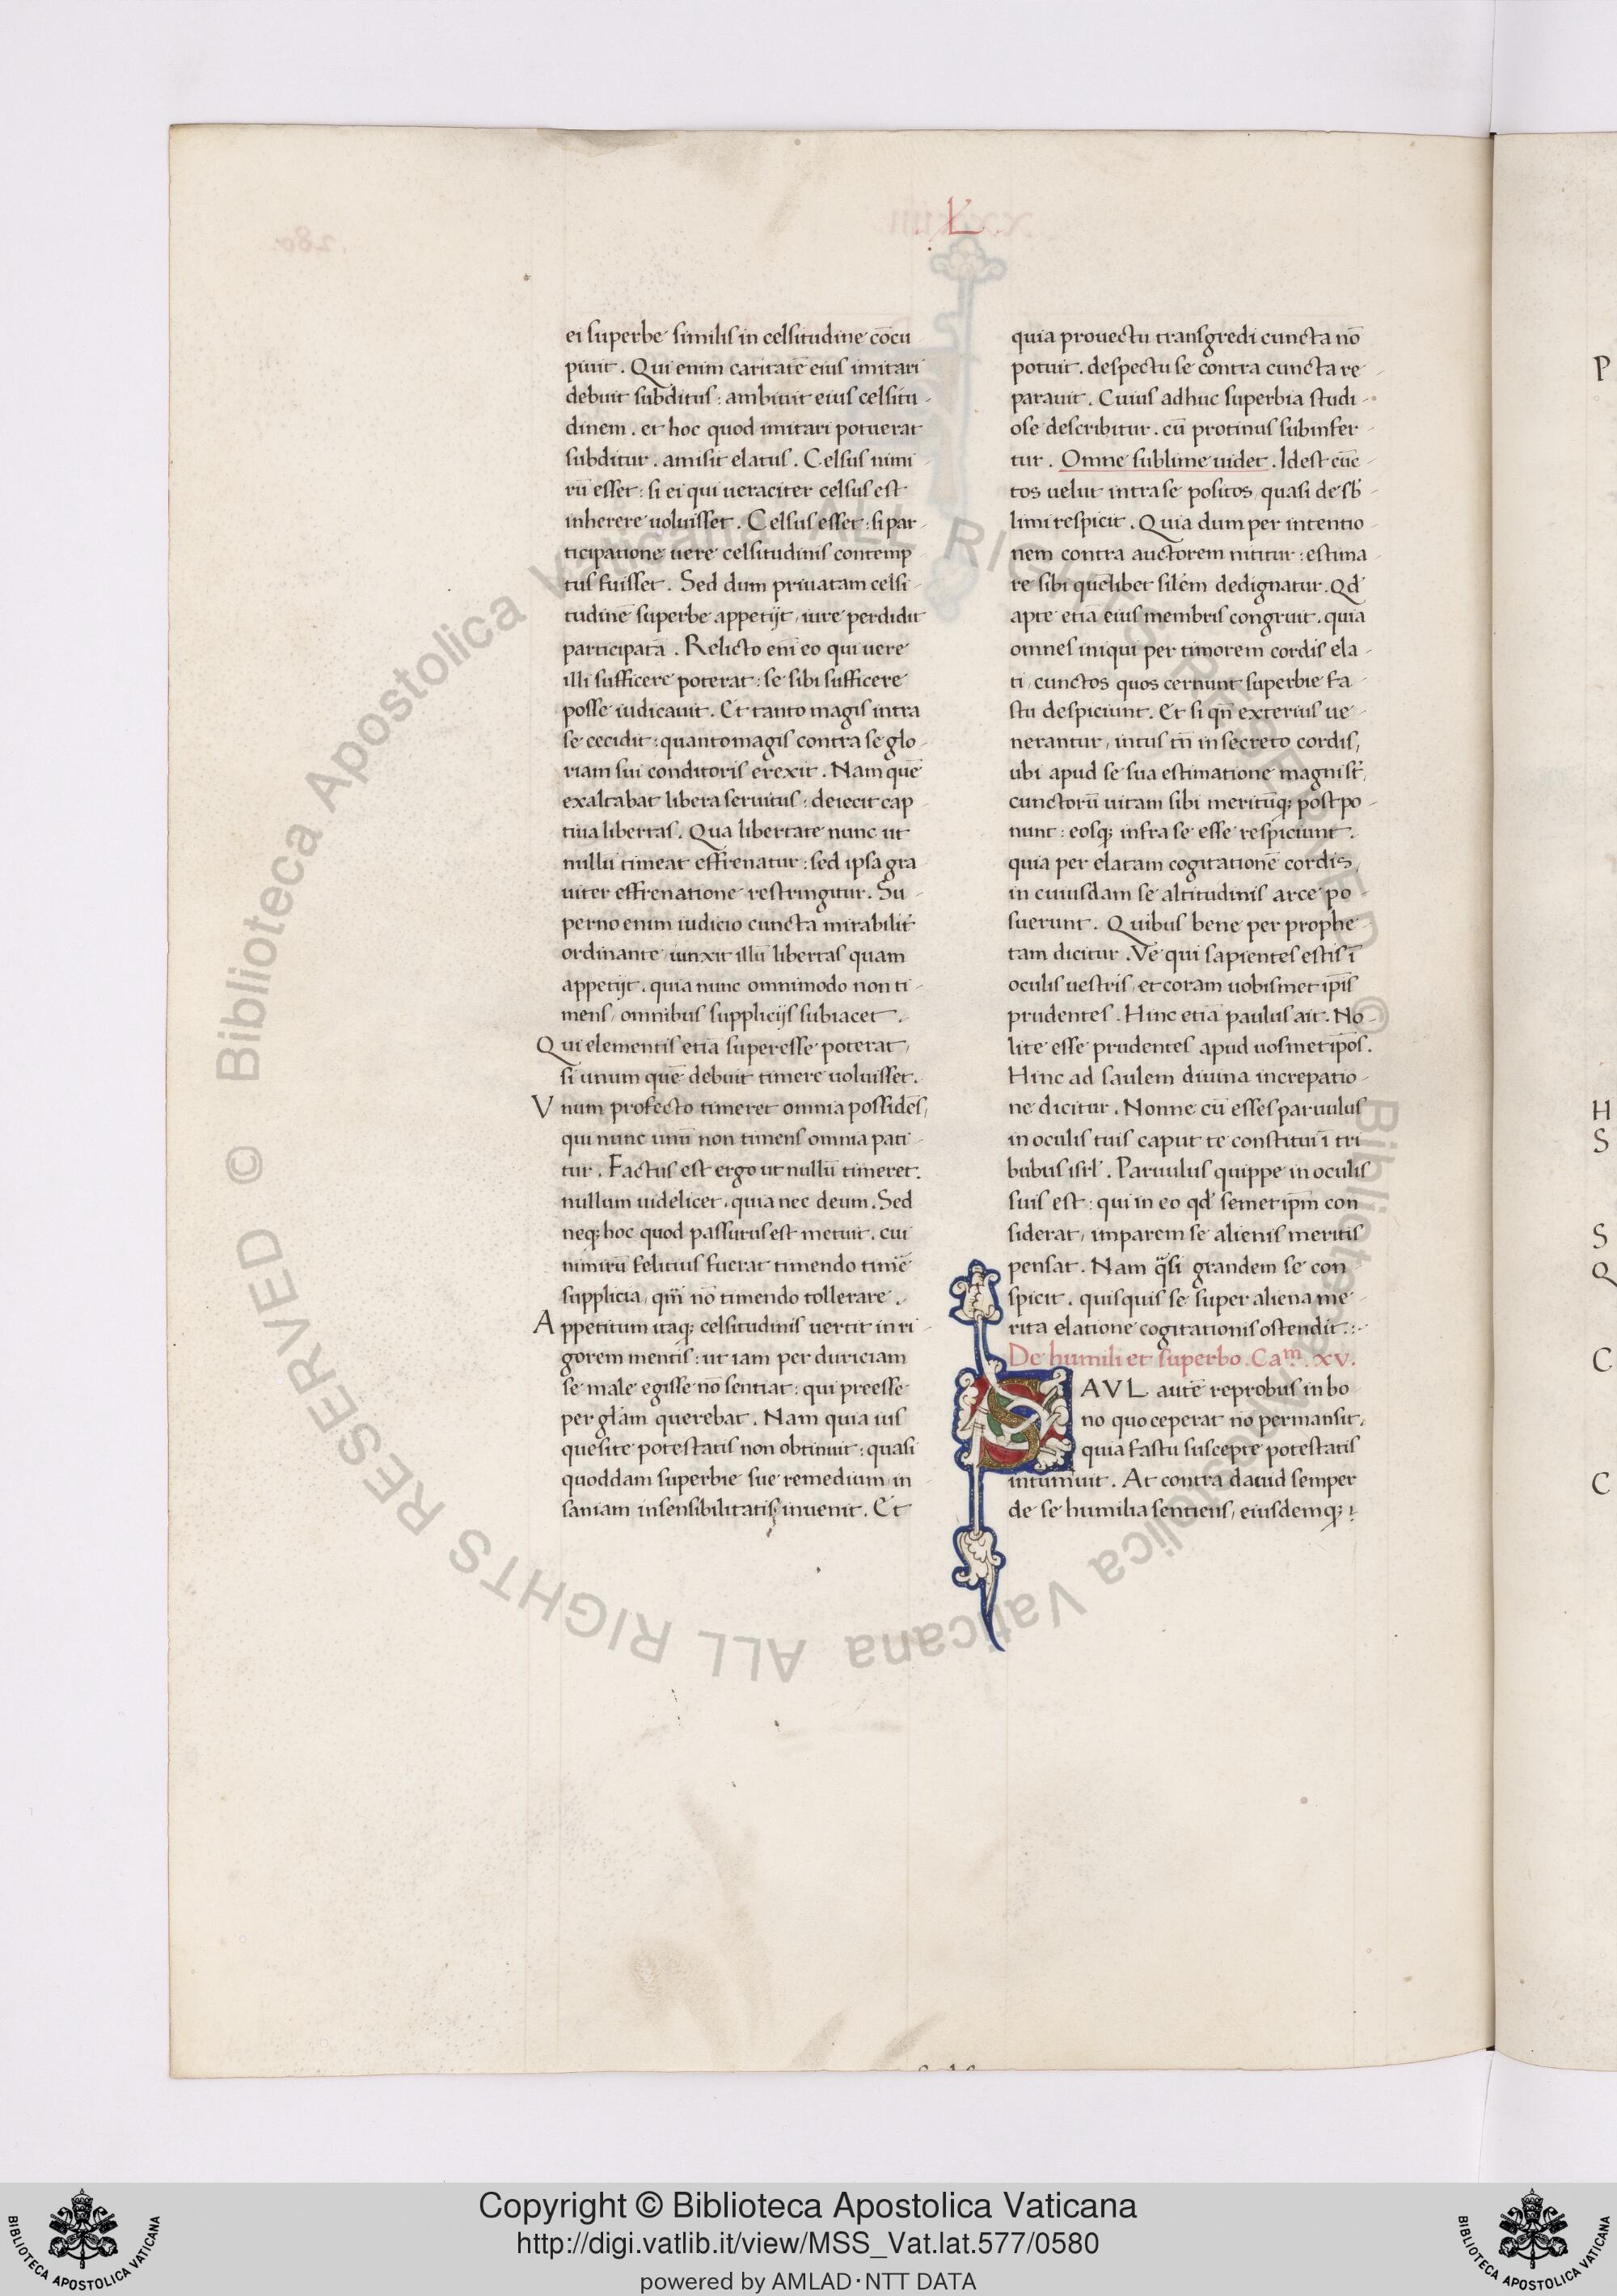 L
ei superbe similis in celsitudine cōcu
piuit. Qui enim caritatē eius imitari
debuit subditus: ambiuit eius celsitu-
dinem. et hoc quod imitari potuerat
subditur. amisit elatus. Celsus nimi-
rū esset: si ei qui ueraciter celsus est
inherere uoluisset. Celsus esset: si par-
ticipatione uere celsitudinis contemp
tus fuisset. Sed dum priuatam celsi-
tudinē superbe appetijt, iure perdidit
participatā. Relicto eni̅ eo qui uere
illi sufficere poterat: se sibi sufficere
posse iudicauit. Et tanto magis intra
se cecidit: quanto magis contra se glo-
riam sui conditoris erexit. Nam quē
exaltabat libera seruitus: deiecit cap
tiua libertas. Qua libertate nunc ut
nullū timeat effrenatur: sed ipsa gra
uiter effrenatione restringitur. Su-
perno enim iudicio cuncta mirabilit̛
ordinante, iunxit illū libertas quam
appetijt. quia nunc omnimodo non ti-
mens, omnibus supplicijs subiacet.
Qui elementis etiā superesse poterat,
si unum quē debuit timere uoluisset.
Vnum profecto timeret omnia possidēs,
qui nunc unū non timens omnia pati-
tur. Factus est ergo ut nullū timeret.
nullum uidelicet. quia nec deum. Sed
neq; hoc quod passurus est metuit. cui
nimirū felicius fuerat timendo timē
supplicia, qm̅ nō timendo tollerare.
Appetitum itaq; celsitudinis uertit in ri-
gorem mentis: ut iam per duriciam
se male egisse nō sentiat: qui preesse
per gl̅am querebat. Nam quia ius
quesite potestatis non obtinuit: quasi
quoddam superbie sue remedium, in-
saniam insensibilitatis inuenit. Et
quia prouectu transgredi cuncta nō
potuit. despectu se contra cuncta re-
parauit. Cuius adhuc superbia studi-
ose describitur. cū protinus subinfer-
tur. Omne sublime uidet. Idest cūc-
tos uelut intra se positos, quasi de sb̛-
limi respicit. Quia dum per intentio-
nem contra auctorem nititur: estima-
re sibi quelibet sil̅em dedignatur. Qd̛
apte etiā eius membris congruit. quia
omnes iniqui per timorem cordis ela-
ti, cunctos quos cernunt superbie fa-
stu despiciunt. Et si qn̅ exterius ue-
nerantur, intus tn̅ in secreto cordis,
ubi apud se sua estimatione magni st̛,
cunctorū uitam sibi meritūq; postpo-
nunt: eosq; infra se esse respiciunt.
quia per elatam cogitationē cordis,
in cuiusdam se altitudinis arce po-
suerunt. Quibus bene per prophe-
tam dicitur. Ve qui sapientes estis ī
oculis uestris, et coram uobismet ip̅is
prudentes. Hinc etiā paulus ait. No-
lite esse prudentes apud uosmetip̅os.
Hinc ad saulem diuina increpatio-
ne dicitur. Nonne cū esses paruulus
in oculis tuis caput te constitui ī tri
bubus isrl̛. Paruulus quippe in oculis
suis est: qui in eo qd̛ semetip̅m con
siderat, imparem se alienis meritis
pensat. Nam q̈si grandem se con-
spicit. quisquis se super aliena me-
rita elatione cogitationis ostendit.:-
De humili et superbo. Caᵐ. xv.
SAVL autē reprobus in bo
no quo ceperat nō permansit,
quia fastu suscepte potestatis
intumuit. At contra dauid semper
de se humilia sentiens, eiusdemq;
P
H
S
S
Q
C
C
© Biblioteca Apostolica Vaticana ALL RIGHTS RESERVED
Copyright © Biblioteca Apostolica Vaticana
http://digi.vatlib.it/view/MSS_Vat.lat.577/0580
powered by AMLAD·NTT DATA
BIBLIOTECA APOSTOLICA VATICANA
BIBLIOTECA APOSTOLICA VATICANA